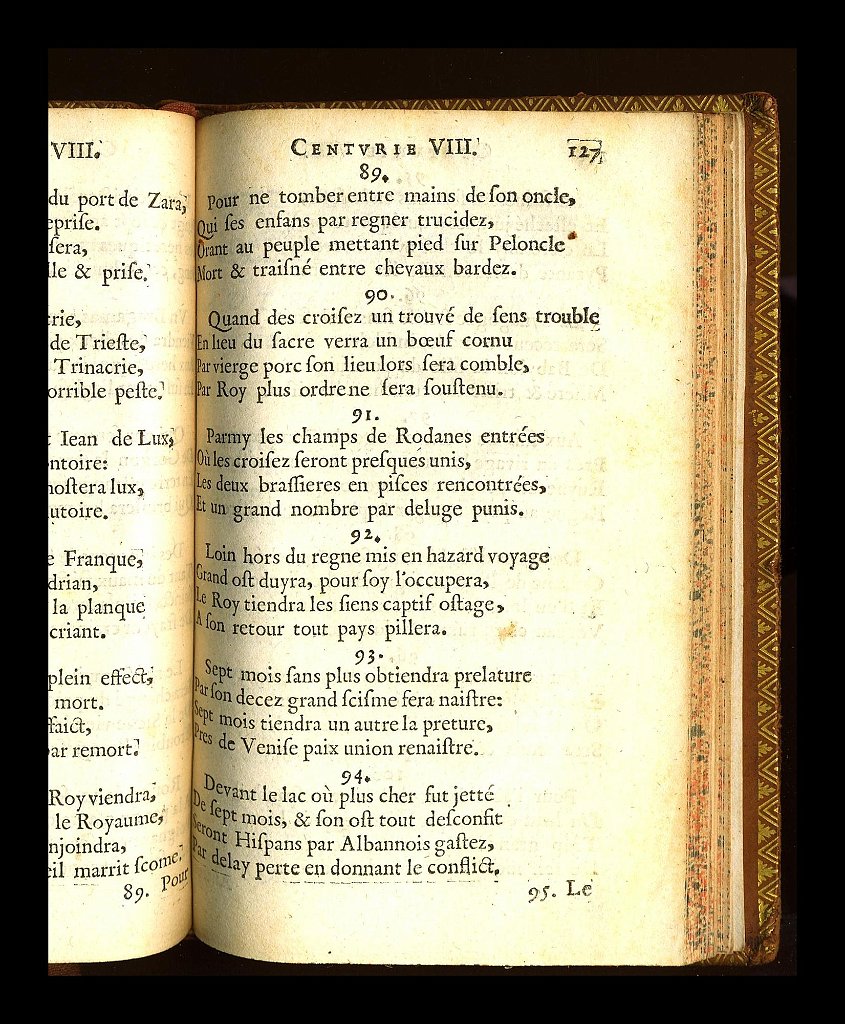 VIII.
du port de Zara,
eprise.
sera,
lle & prise.
rie,
de Trieste,
Trinacrie,
orrible peste.
Iean de Lux,
ntoire:
nostera lux,
utoire.
e Franque,
drian,
la planque
criant.
plein effect,
mort.
faict,
ar remort.
Roy viendra,
le Royaume,
njoindra,
eil marrit scome,
89. Pour
CENTVRIE VIII. 127
89.
Pour ne tomber entre mains de son oncle,
Qui ses enfans par regner trucidez,
Orant au peuple mettant pied sur Peloncle
Mort & traisné entre chevaux bardez.
90.
Quand des croisez un trouvé de sens trouble
En lieu du sacre verra un bœuf cornu
Par vierge porc son lieu lors sera comble,
Par Roy plus ordre ne sera soustenu.
91.
Parmy les champs de Rodanes entrées
Où les croisez seront presques unis,
Les deux brassieres en pisces rencontrées,
Et un grand nombre par deluge punis.
92.
Loin hors du regne mis en hazard voyage
Grand ost duyra, pour soy l'occupera,
Le Roy tiendra les siens captif ostage,
A son retour tout pays pillera.
93.
Sept mois sans plus obtiendra prelature
Par son decez grand scisme fera naistre:
Sept mois tiendra un autre la preture,
Pres de Venise paix union renaistre.
94.
Devant le lac où plus cher fut jetté
De sept mois, & son ost tout desconfit
Seront Hispans par Albannois gastez,
Par delay perte en donnant le conflict.
95. Le